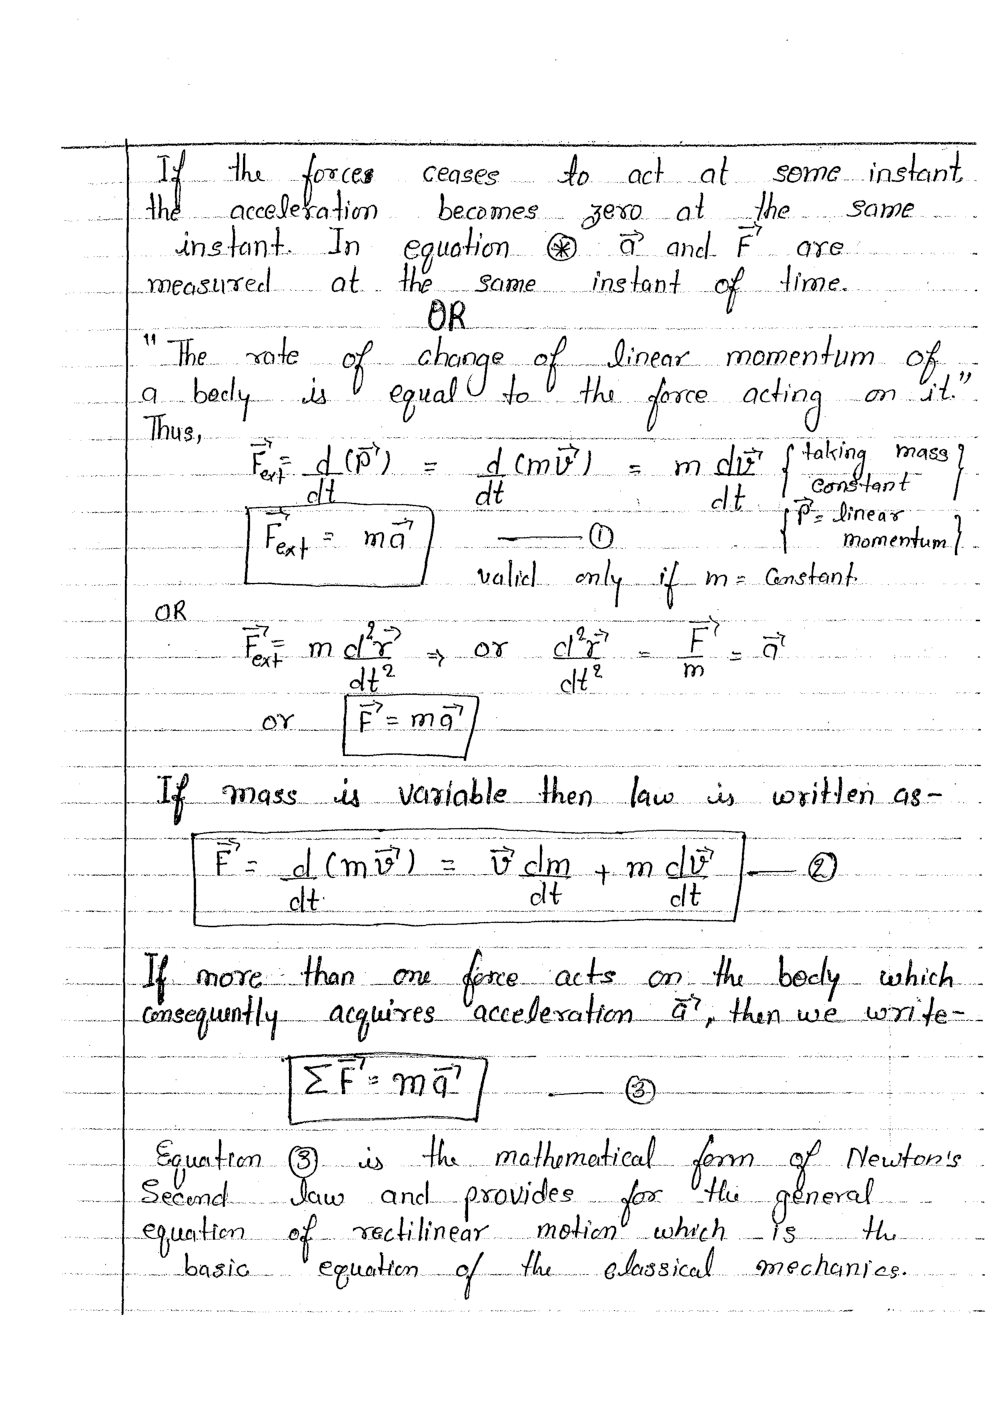 If the forces ceases to act at some instant
the acceleration becomes zero at the same
instant. In equation ⊛ a⃗ and F⃗ are
measured at the same instant of time.
OR
"The rate of change of linear momentum of
a body is equal to the force acting on it."
Thus,
F⃗ext = d/dt (p⃗) = d/dt (mv⃗) = m dv⃗/dt {taking mass constant}
{p⃗ = linear momentum}.
F⃗ext = ma⃗ —— ①
valid only if m = Constant.
OR
F⃗ext = m d²r⃗/dt² ⇒ or d²r⃗/dt² = F⃗/m = a⃗
or F⃗ = ma⃗
If mass is variable then law is written as-
F⃗ = d/dt (mv⃗) = v⃗ dm/dt + m dv⃗/dt —— ②
If more than one force acts on the body which
consequently acquires acceleration a⃗, then we write-
ΣF⃗ = ma⃗ —— ③
Equation ③ is the mathematical form of Newton's
Second law and provides for the general
equation of rectilinear motion which is the
basic equation of the classical mechanics.